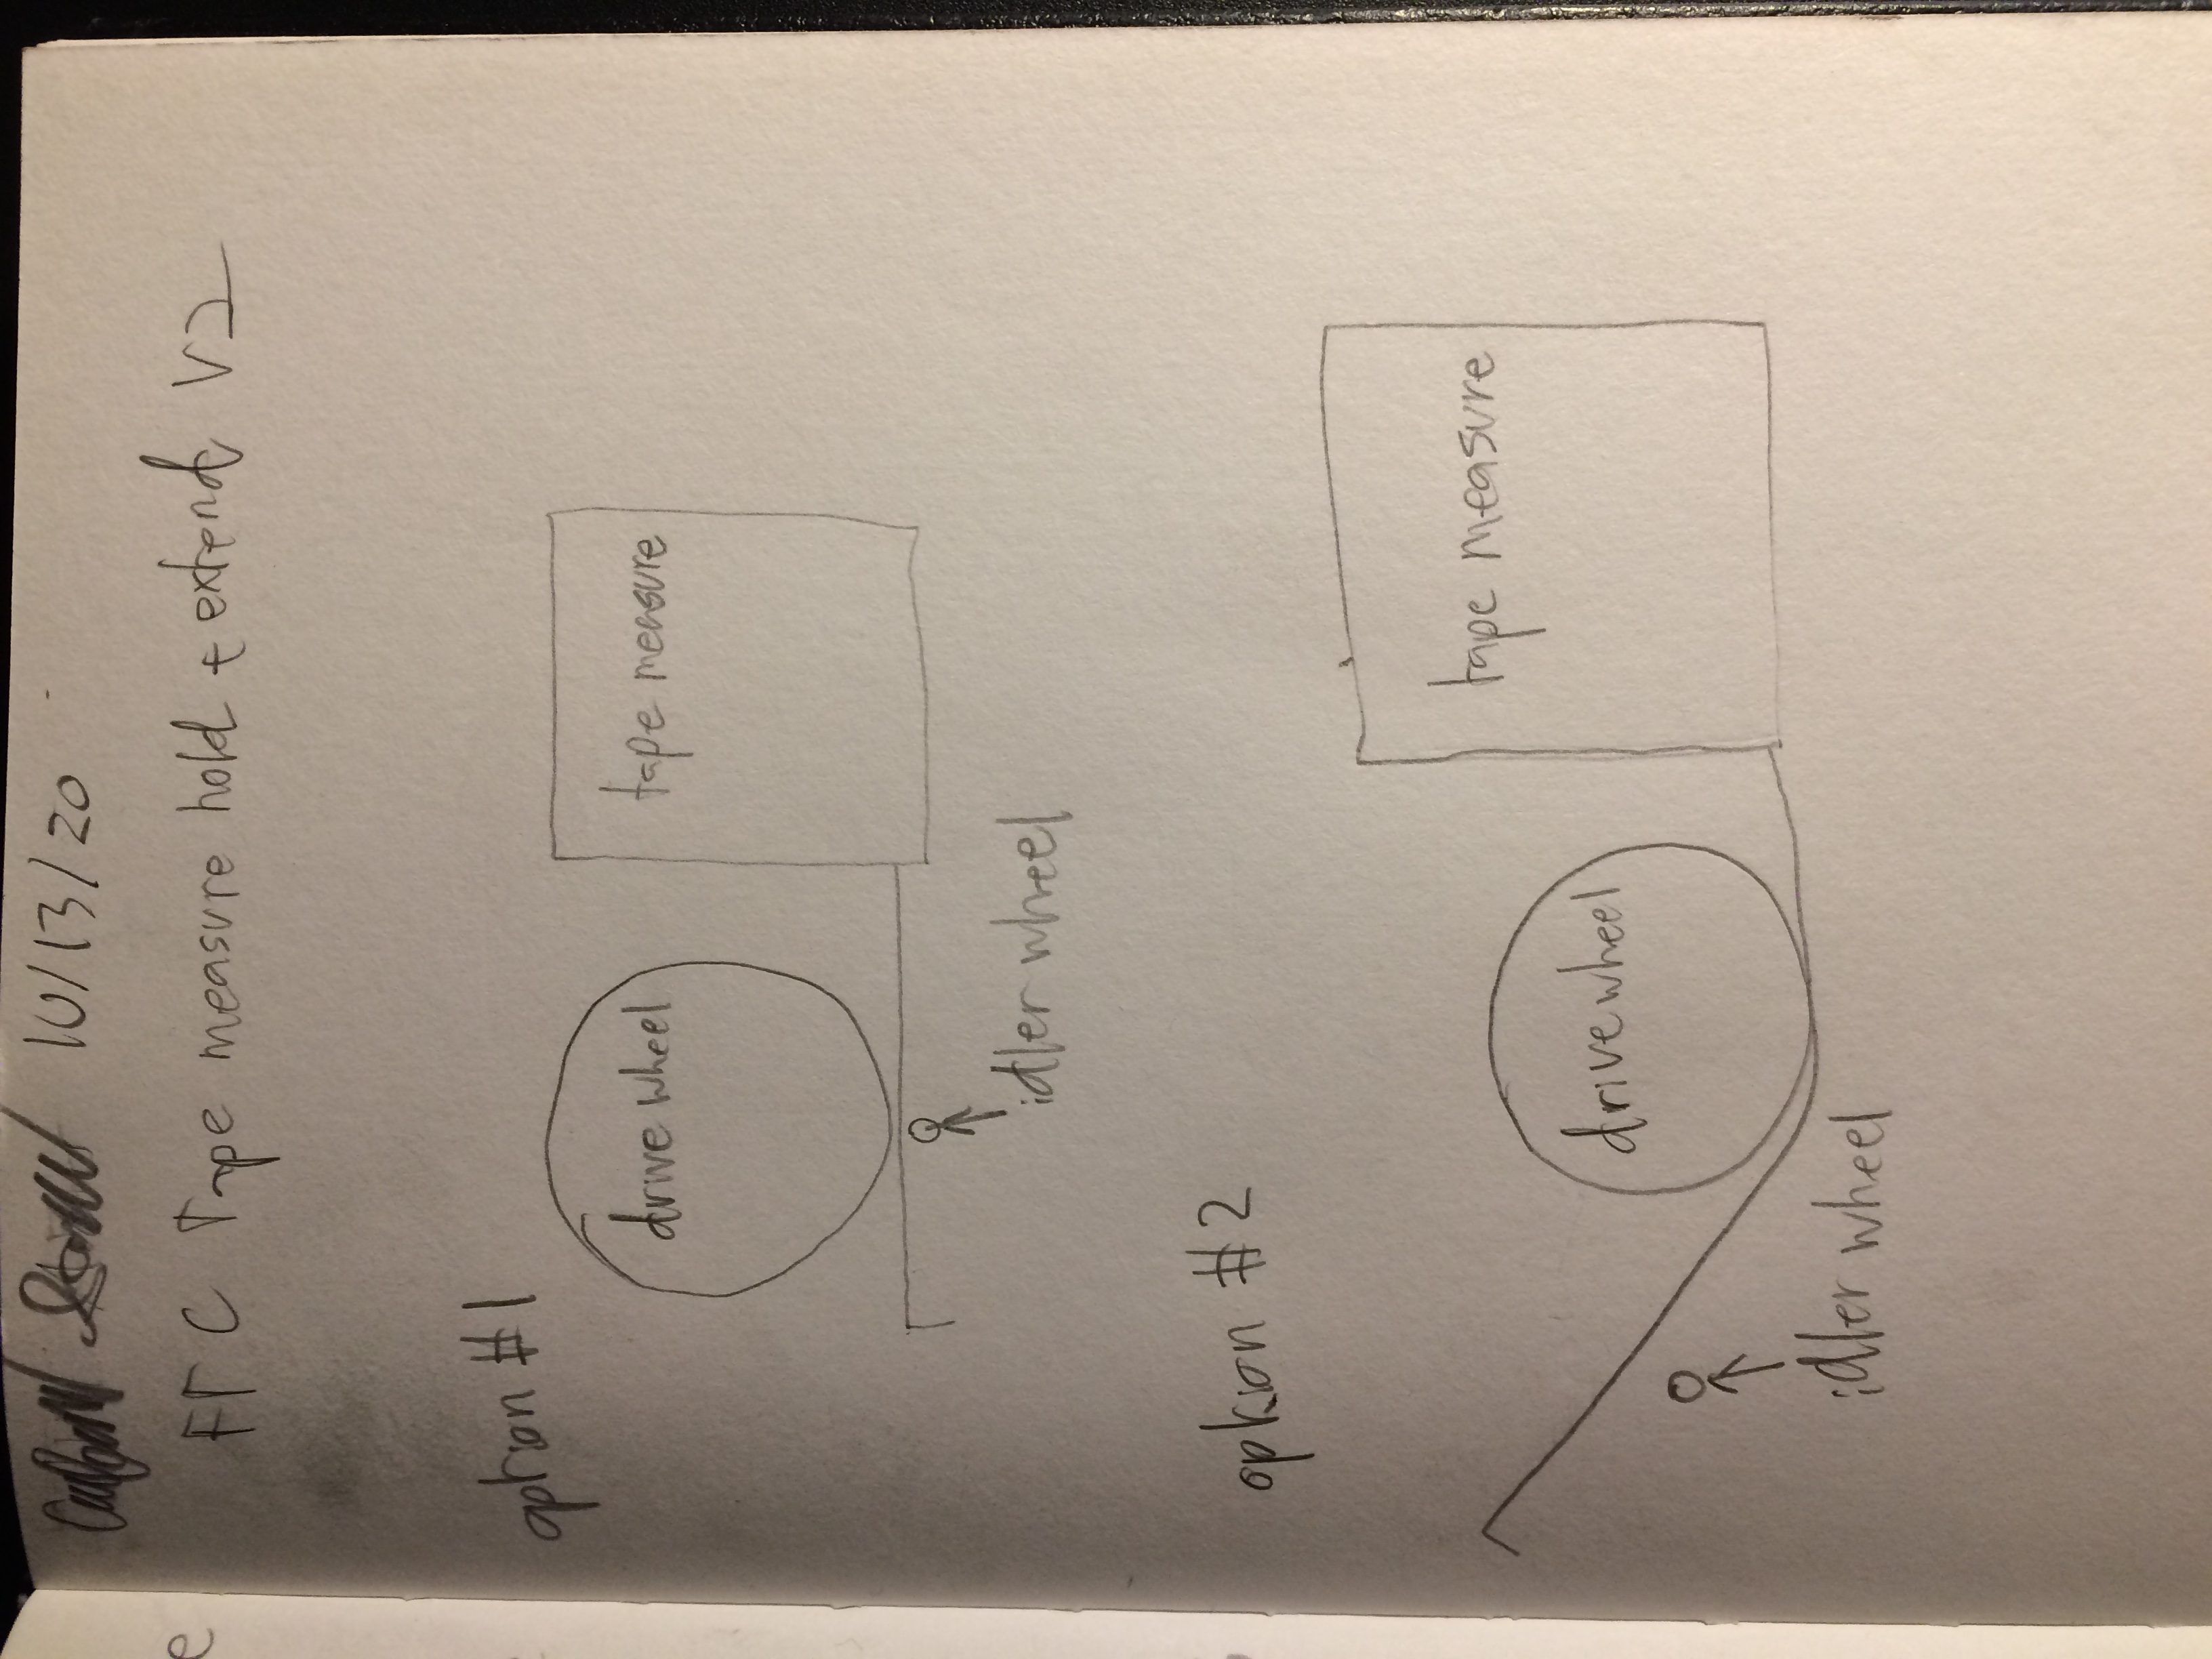 10/13/20
FTC Tape measure hold + extend V2
option #1
drive wheel
tape measure
idler wheel
option #2
tape measure
drive wheel
idler wheel
e